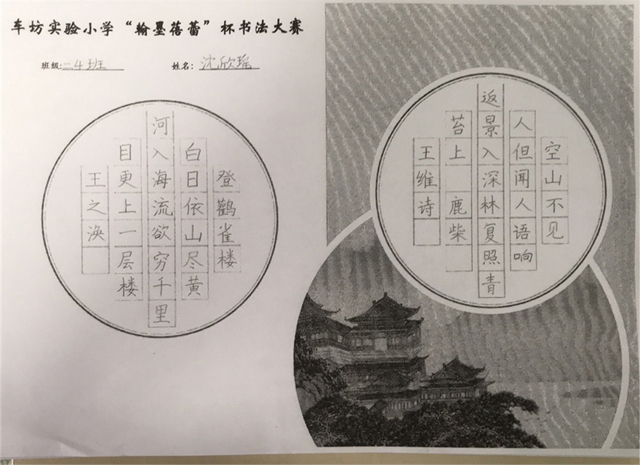 车坊实验小学“翰墨蓓蕾”杯书法大赛
班级:二4班 姓名:沈欣瑶
登鹳雀楼
白日依山尽黄
河入海流欲穷千里
目更上一层楼
王之涣
空山不见
人但闻人语响
返景入深林复照青
苔上 鹿柴
王维诗